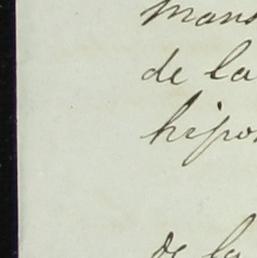 mans
de la
hipo
de la